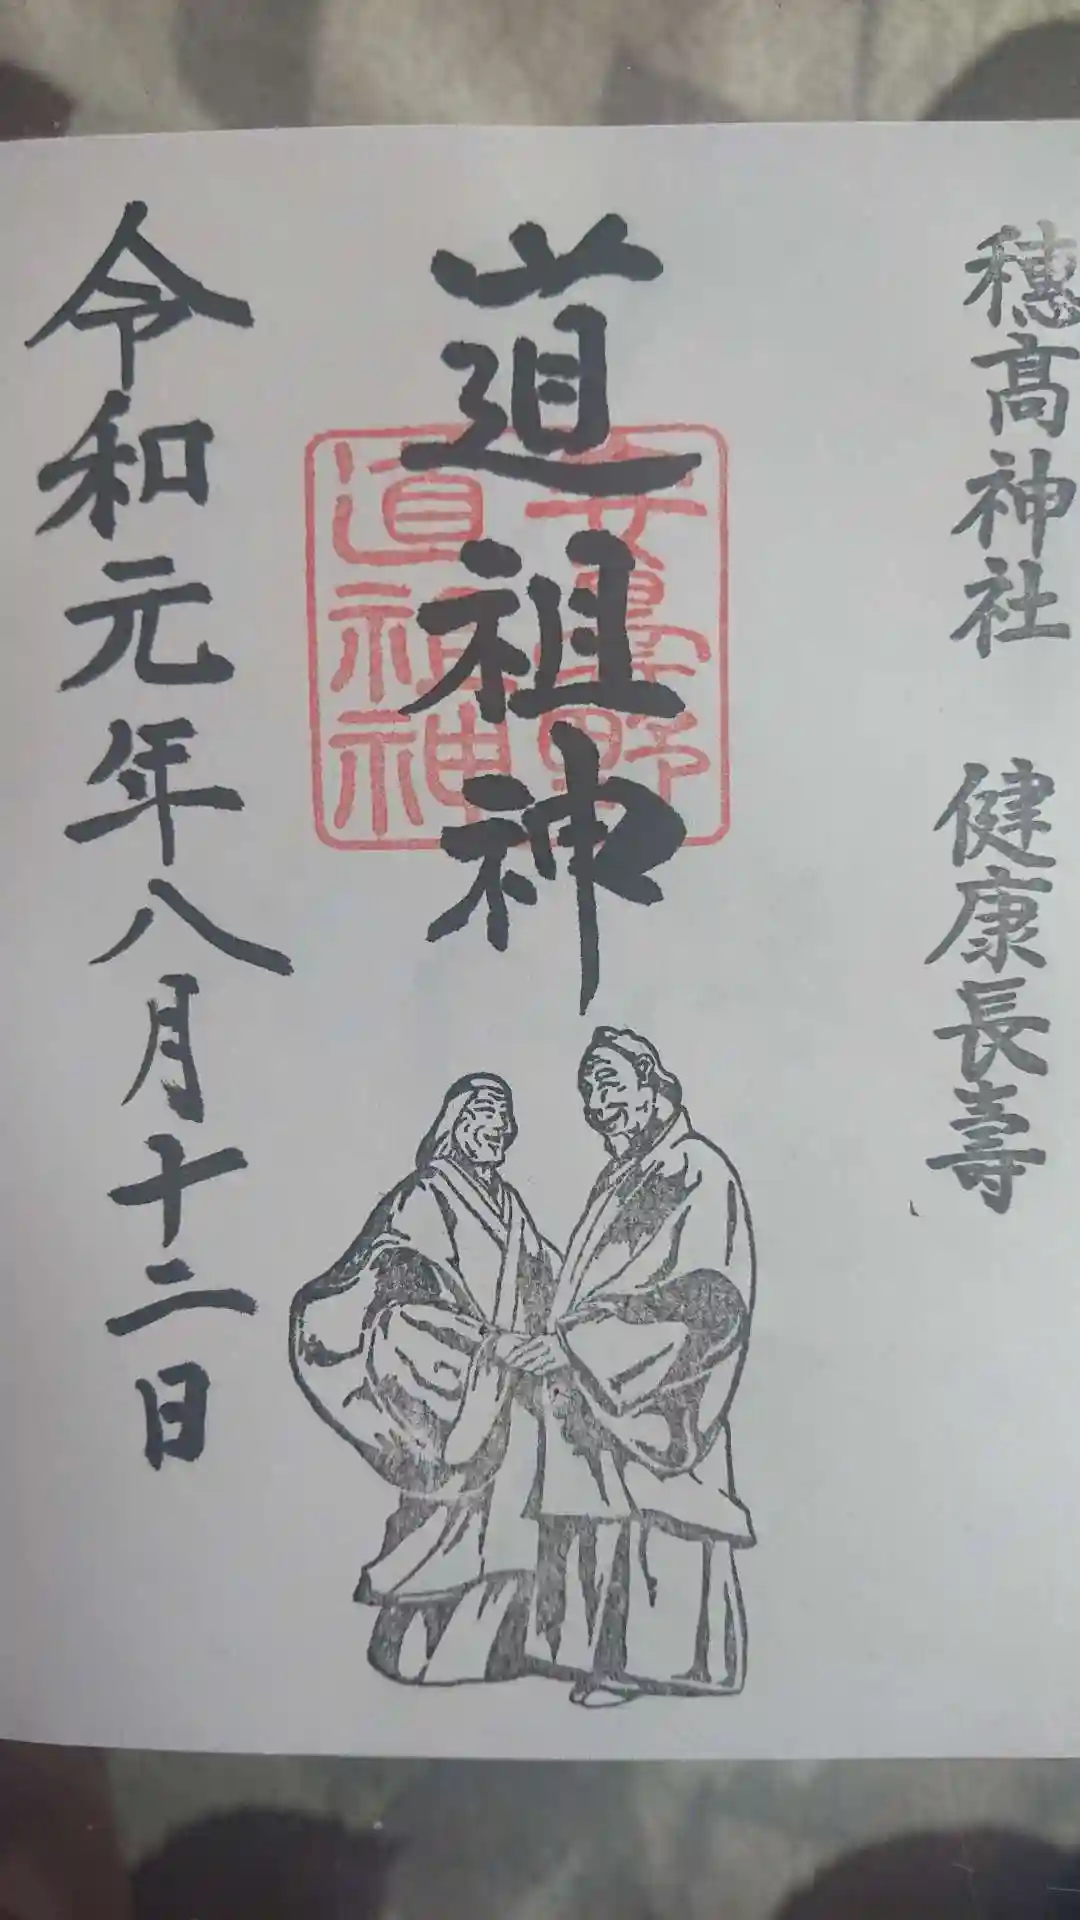 穗髙神社 健康長壽
道祖神
安曇野
道祖神
令和元年八月十二日